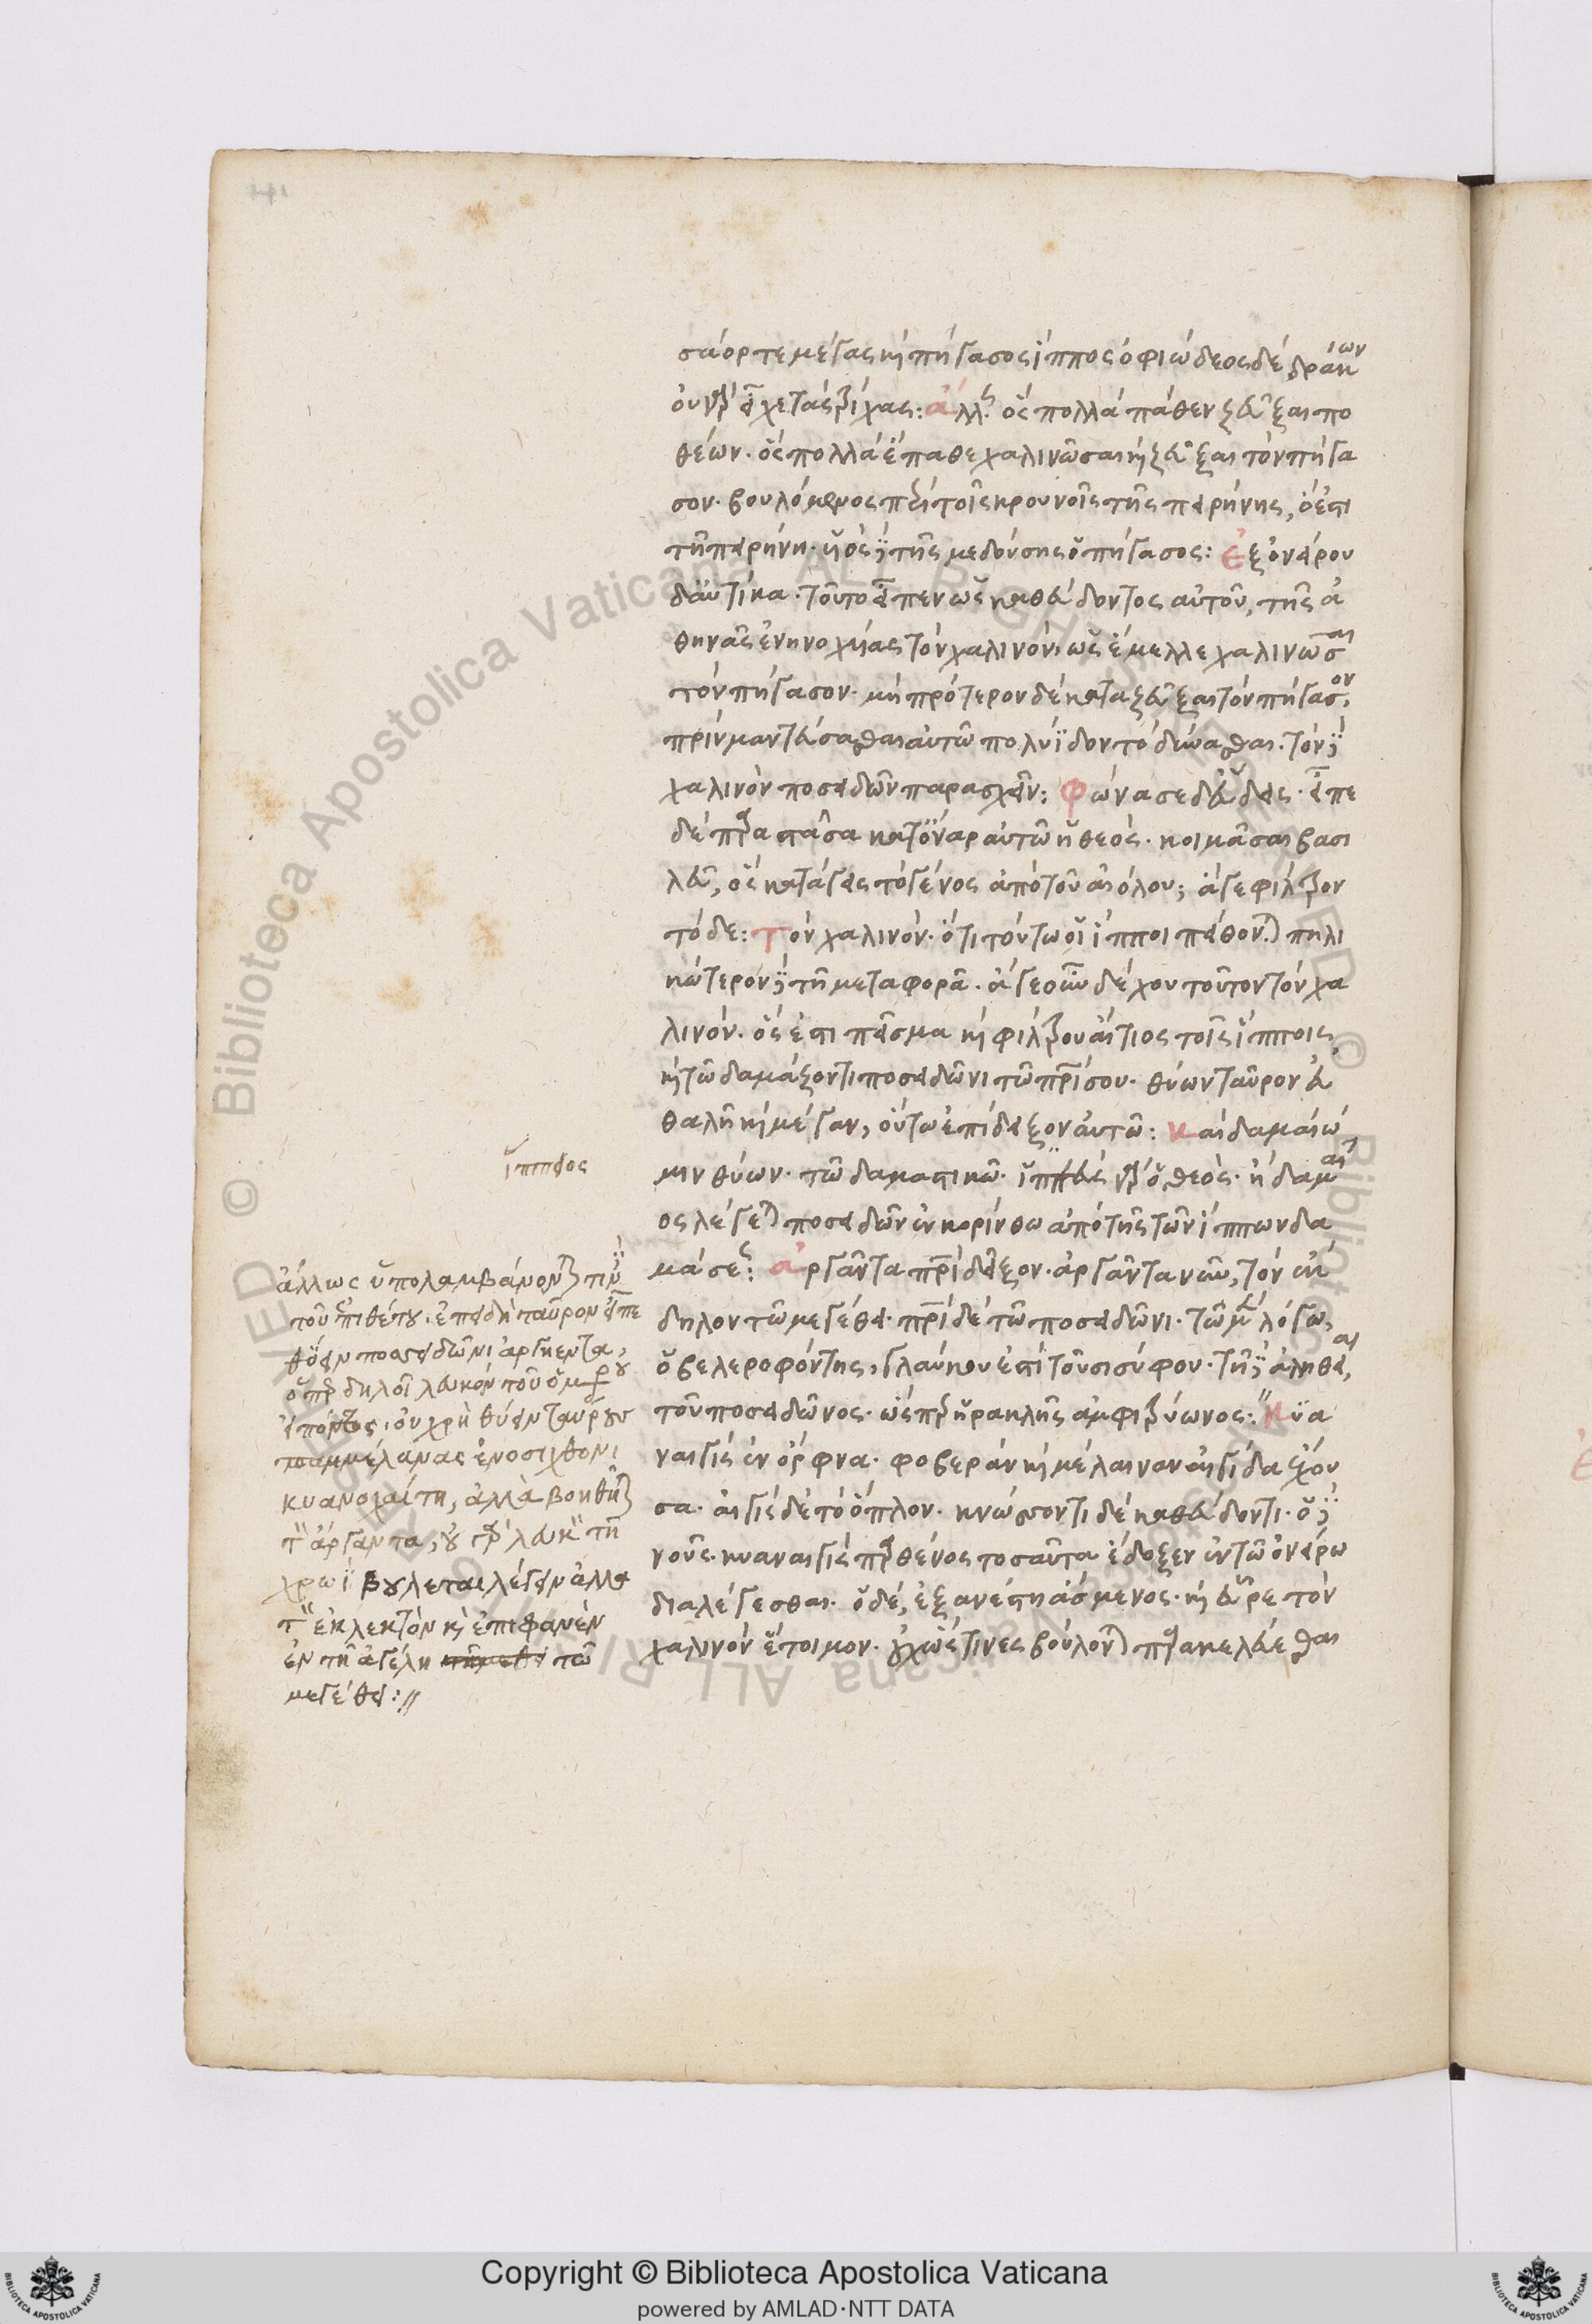 σάορ τε μέγας κὴ πήγασος ἵππος ὀφιώδεος δὲ δρακιων
θέων. ὃς πολλὰ ἔπαθε χαλινῶσαι κὴ ζεῦξαι τὸν πήγα
σον. βουλόμενος περὶ τοῖς κρουνοῖς τῆς πειρήνης, ὅ ἐστι
τῆ πειρήνη. υἱὸς δὲ τῆς μεδούσης ὁ πήγασος: ἐξ ὀνείρου
δ' αὐτίκα. τοῦτο εἶπεν ὡς καθεύδοντος αὐτοῦ, τῆς ἀ
θηνᾶς ἐνηνοχυίας τὸν χαλινόν, ὡς ἔμελλε χαλινῶσαι
τὸν πήγασον. μὴ πρότερον δὲ καταζεῦξαι τὸν πήγασον,
πρὶν μαντεύσασθαι αὐτῶ πολυΐδον τὸ δύνασθαι. τὸν δὲ
χαλινὸν ποσειδῶν παρασχεῖν: φώνασε δ' εὕδεις. εἶπε
δὲ παραστᾶσα κατ' ὄναρ αὐτῶ ἡ θεός. κοιμᾶσαι βασι
λεῦ, ὃς κατάγεις τὸ γένος ἀπὸ τοῦ αἰόλου; ἄγε φίλτρον
τόδε: τὸν χαλινόν. ὅτι τούτω οἱ ἵπποι πείθονται πηλι
κώτερον δὲ τῆ μεταφορᾶ. ἄγε οὖν δέχου τοῦτον τὸν χα
λινόν. ὅς ἐστι πεῖσμα κὴ φίλτρου αἴτιος τοῖς ἵπποις,
κὴ τῶ δαμάζοντι ποσειδῶνι τῶ πατρί σου. θύων ταῦρον εὐ
θαλῆ κὴ μέγαν, οὕτω ἐπίδειξον αὐτῶ: καὶ δαμαίω
μιν θύων. τῶ δαμαστικῶ. ἱππεὺς γὰρ ὁ θεός. ἢ δαμαῖ
ος λέγεται ποσειδῶν ἐν κορίνθω ἀπὸ τῆς τῶν ἵππων δα
μάσεως: ἀργᾶντα πατρὶ δεῖξον. ἀργᾶντα νῦν, τὸν εὔ
δηλον τῶ μεγέθει. πατρὶ δὲ τῶ ποσειδῶνι. τῶ μὲν λόγω,
ὁ βελεροφόντης, γλαύκου ἐστὶ τοῦ σισύφου. τῆ δὲ ἀληθεία,
τοῦ ποσειδῶνος. ὡς περ ἡρακλῆς ἀμφιτρύωνος: κυα
ναιγὶς ἐν ὄρφνα. φοβερὰν κὴ μέλαιναν αἰγίδα ἔχου
σα. αἰγὶς δὲ τὸ ὅπλον. κνώσσοντι δὲ καθεύδοντι. ὁ δὲ
νοῦς. κυαναιγὶς παρθένος τοσαῦτα ἔδοξεν ἐν τῶ ὀνείρω
διαλέγεσθαι. ὁ δὲ, ἐξανέστη ἀσμενος. κὴ εὗρε τὸν
χαλινὸν ἕτοιμον. οὐχ ὥς τινες βούλονται παρακελεύεσθαι
ἱππεῖος
ἄλλως ὑπολαμβάνονται περὶ
τοῦ ἐπιθέτου. ἐπειδὴ ταῦρον εἶπε
θύειν ποσειδῶνι ἀργήεντα,
ὅπερ δηλοῖ λευκόν τοῦ ὁμήρου
εἰπόντος, οὐ χρὴ θύειν ταύρους
παμμέλανας ἐνοσίχθονι
κυανοχαίτη, ἀλλὰ βοηθεῖται
τὸ ἀργάντα, οὐ γὰρ λευκὸν τῆ
χρωΐ βούλεται λέγειν ἀλλὰ
τὸν ἐκλεκτὸν κὴ ἐπιφανὲν
ἐν τῆ ἀγέλη τῶ
μεγέθει://
Copyright © Biblioteca Apostolica Vaticana
powered by AMLAD·NTT DATA